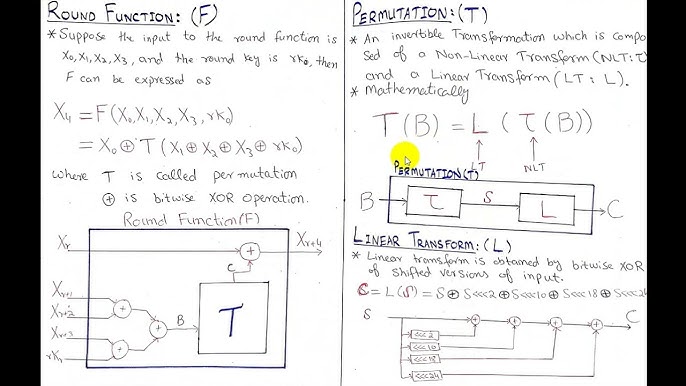 ROUND FUNCTION: (F)
* Suppose the input to the round function is
X₀,X₁,X₂,X₃, and the round key is rk₀, then
F can be expressed as
X₄ = F(X₀,X₁,X₂,X₃,rk₀)
= X₀ ⊕ T (X₁ ⊕ X₂ ⊕ X₃ ⊕ rk₀)
where T is called permutation
⊕ is bitwise XOR operation.
Round Function(F)
Xᵣ
Xᵣ₊₄
C
Xᵣ₊₁
Xᵣ₊₂
B
T
Xᵣ₊₃
rkᵣ
PERMUTATION: (T)
* An invertible Transformation which is compo
sed of a Non-Linear Transform (NLT: τ)
and a Linear Transform (LT: L).
* Mathematically
T(B) = L (τ(B))
LT
NLT
PERMUTATION(T)
B
τ
S
L
C
LINEAR TRANSFORM: (L)
* Linear transform is obtained by bitwise XOR
of shifted versions of input.
C = L(S) = S ⊕ S<<<2 ⊕ S<<<10 ⊕ S<<<18 ⊕ S<<<24
S
C
<<<2
<<<10
<<<18
<<<24